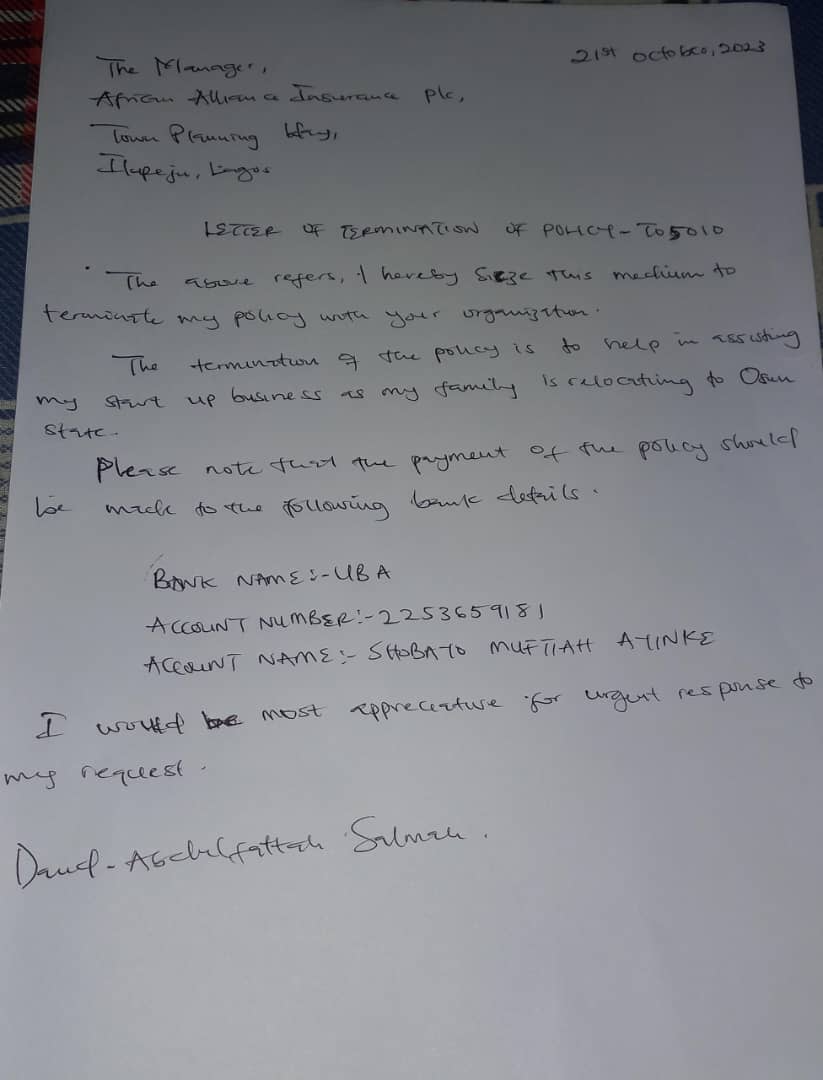 21st October, 2023
The Manager,
African Alliance Insurance Plc,
Town Planning Way,
Ilupeju, Lagos
LETTER OF TERMINATION OF POLICY - TO5010
The above refers, I hereby sieze this medium to
terminate my policy with your organization.
The termination of the policy is to help in assisting
my start up business as my family is relocating to Osun
State.
Please note that the payment of the policy should
be made to the following bank details.
BANK NAME:- UBA
ACCOUNT NUMBER:- 2253659181
ACCOUNT NAME:- SHOBAYO MUFTIAH AYINKE
I would be most appreciative for urgent response to
my request.
Daud-Abdulfattah Salmah.